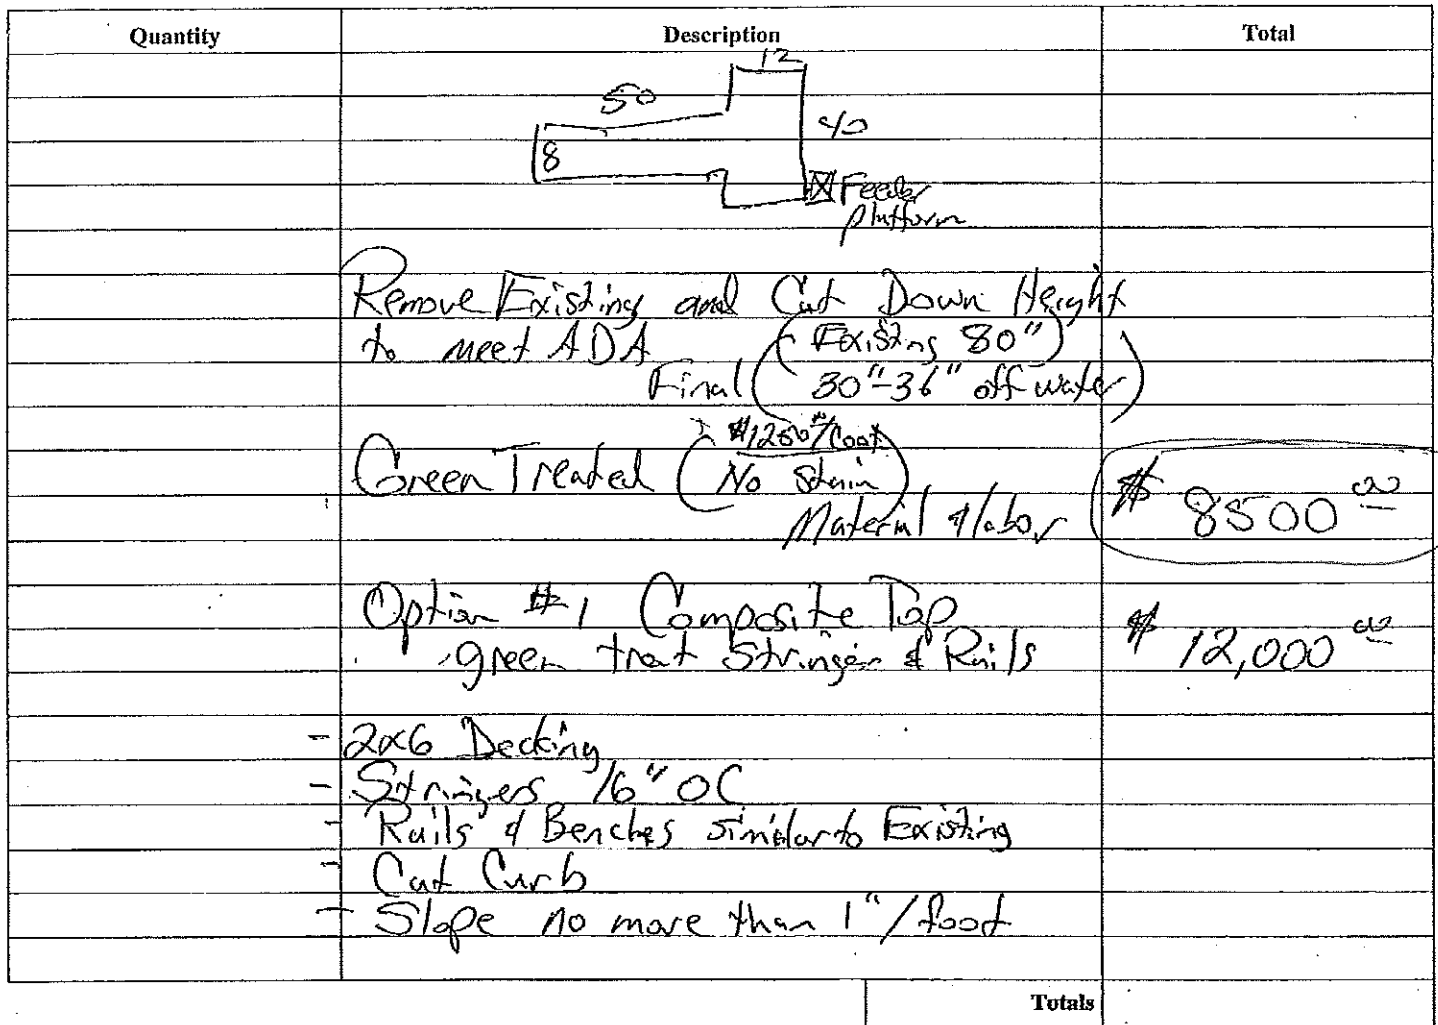 Quantity Description Total
12
50
40
8
Feeder
platform
Remove Existing and Cut Down Height
to meet ADA (Existing 80")
Final (30"-36" off water)
$1250.00/Coat
Green Treated (No Stain)
Material & labor $ 8500.00
Option #1 Composite Top
green treat Stringer & Rails $ 12,000.00
- 2x6 Decking
- Stringers 16" OC
- Rails & Benches similar to Existing
- Cut Curb
- Slope no more than 1"/foot
Totals